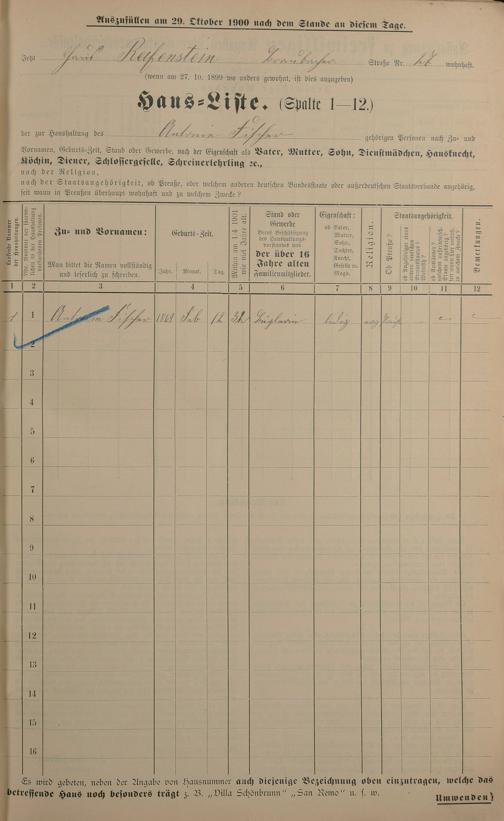 Auszufüllen am 29. Oktober 1900 nach dem Stande an diesem Tage.
Jetzt Haus Reifenstein Straße Nr. 27 wohnhaft.
(wenn am 27. 10. 1899 wo anders gewohnt, ist dies anzugeben)
Haus=Liste. (Spalte 1—12.)
der zur Haushaltung des Antonie Fischer gehörigen Personen nach Zu= und
Vornamen, Geburts=Zeit, Stand oder Gewerbe, nach der Eigenschaft als Vater, Mutter, Sohn, Dienstmädchen, Hausknecht,
Köchin, Diener, Schlossergeselle, Schreinerlehrling ꝛc.,
nach der Religion,
nach der Staatsangehörigkeit, ob Preuße, oder welchem anderen deutschen Bundesstaate oder außerdeutschen Staatsverbande angehörig,
seit wann in Preußen überhaupt wohnhaft und zu welchem Zwecke?
Zu= und Vornamen:
Man bittet die Namen vollständig
und leserlich zu schreiben.
Geburts=Zeit.
Jahr. Monat. Tag.
Mithin am 1./4. 1901
wie viel Jahre alt.
Stand oder
Gewerbe
der über 16
Jahre alten
Familienmitglieder.
Eigenschaft:
ob Vater,
Mutter,
Sohn,
Tochter,
Knecht,
Geselle ꝛc.
Magd.
Religion.
Staatsangehörigkeit.
Ob Preuße?
Bemerkungen.
1 2 3 4 5 6 7 8 9 10 11 12
1 1 Antonie Fischer 1869 Feb 12 32 Büglerin ledig
2
3
4
5
6
7
8
9
10
11
12
13
14
15
16
Es wird gebeten, neben der Angabe von Hausnummer auch diejenige Bezeichnung oben einzutragen, welche das
betreffende Haus noch besonders trägt z. B. „Villa Schönbrunn" „San Remo" u. s. w.
Umwenden!